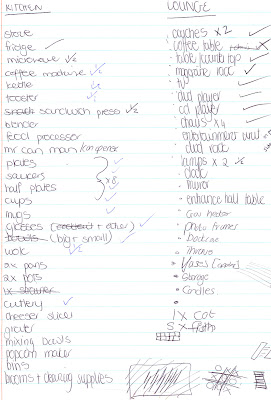 KITCHEN
stove
fridge
microwave
coffee machine
kettle
toaster
sandwich press
blender
food processor
mr can man / can opener
plates
saucers
x 8
half plates
cups
mugs
glasses ( + other)
bowls (big + small)
wok
2x pans
2x pots
1x steamer
cutlery
cheeser slicer
grater
mixing bowls
popcorn maker
bins
brooms + cleaning supplies
LOUNGE
couches x 2
coffee table
table / round top
magazine rack
TV
dvd player
cd player
chairs x 4
entertainment unit
dvd rack
lamps x 2
clock
mirror
enhance hall table
Gas heater
photo frames
Throws
Vases
Storage
Candles
1 x cot
5 x